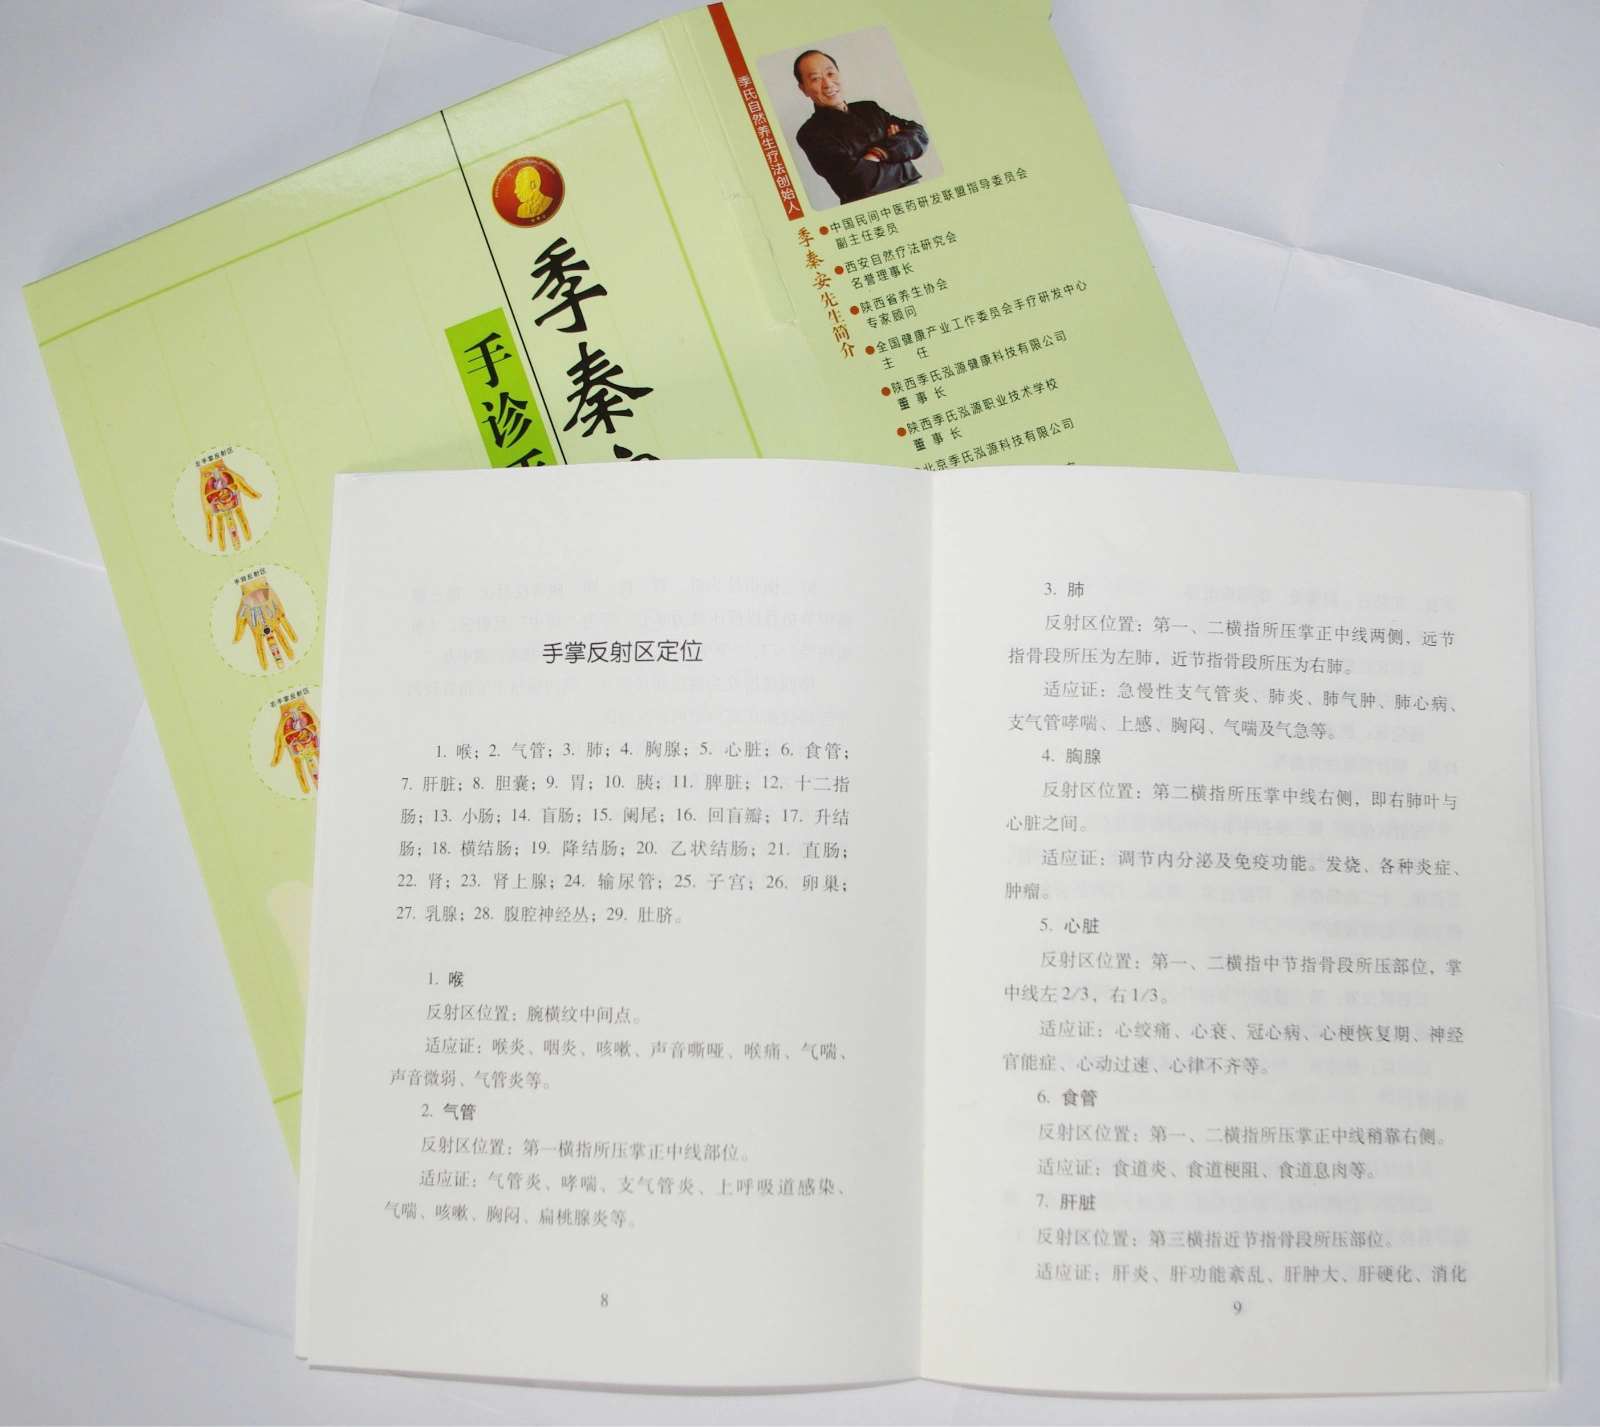 季秦
手诊手
左手掌反射区
手背反射区
右手掌反射区
季氏自然养生疗法创始人
季秦安先生简介
●中国民间中医药研发联盟指导委员会
副主任委员
●西安自然疗法研究会
名誉理事长
●陕西省养生协会
专家顾问
●全国健康产业工作委员会手疗研发中心
主 任
●陕西季氏泓源健康科技有限公司
董 事 长
●陕西季氏泓源职业技术学校
董 事 长
●北京季氏泓源科技有限公司
手掌反射区定位
1. 喉；2. 气管；3. 肺；4. 胸腺；5. 心脏；6. 食管；
7. 肝脏；8. 胆囊；9. 胃；10. 胰；11. 脾脏；12. 十二指
肠；13. 小肠；14. 盲肠；15. 阑尾；16. 回盲瓣；17. 升结
肠；18. 横结肠；19. 降结肠；20. 乙状结肠；21. 直肠；
22. 肾；23. 肾上腺；24. 输尿管；25. 子宫；26. 卵巢；
27. 乳腺；28. 腹腔神经丛；29. 肚脐。
1. 喉
反射区位置：腕横纹中间点。
适应证：喉炎、咽炎、咳嗽、声音嘶哑、喉痛、气喘、
声音微弱、气管炎等。
2. 气管
反射区位置：第一横指所压掌正中线部位。
适应证：气管炎、哮喘、支气管炎、上呼吸道感染、
气喘、咳嗽、胸闷、扁桃腺炎等。
8
3. 肺
反射区位置：第一、二横指所压掌正中线两侧，远节
指骨段所压为左肺，近节指骨段所压为右肺。
适应证：急慢性支气管炎、肺炎、肺气肿、肺心病、
支气管哮喘、上感、胸闷、气喘及气急等。
4. 胸腺
反射区位置：第二横指所压掌中线右侧，即右肺叶与
心脏之间。
适应证：调节内分泌及免疫功能。发烧、各种炎症、
肿瘤。
5. 心脏
反射区位置：第一、二横指中节指骨段所压部位，掌
中线左2/3，右1/3。
适应证：心绞痛、心衰、冠心病、心梗恢复期、神经
官能症、心动过速、心律不齐等。
6. 食管
反射区位置：第一、二横指所压掌正中线稍靠右侧。
适应证：食道炎、食道梗阻、食道息肉等。
7. 肝脏
反射区位置：第三横指近节指骨段所压部位。
适应证：肝炎、肝功能紊乱、肝肿大、肝硬化、消化
9